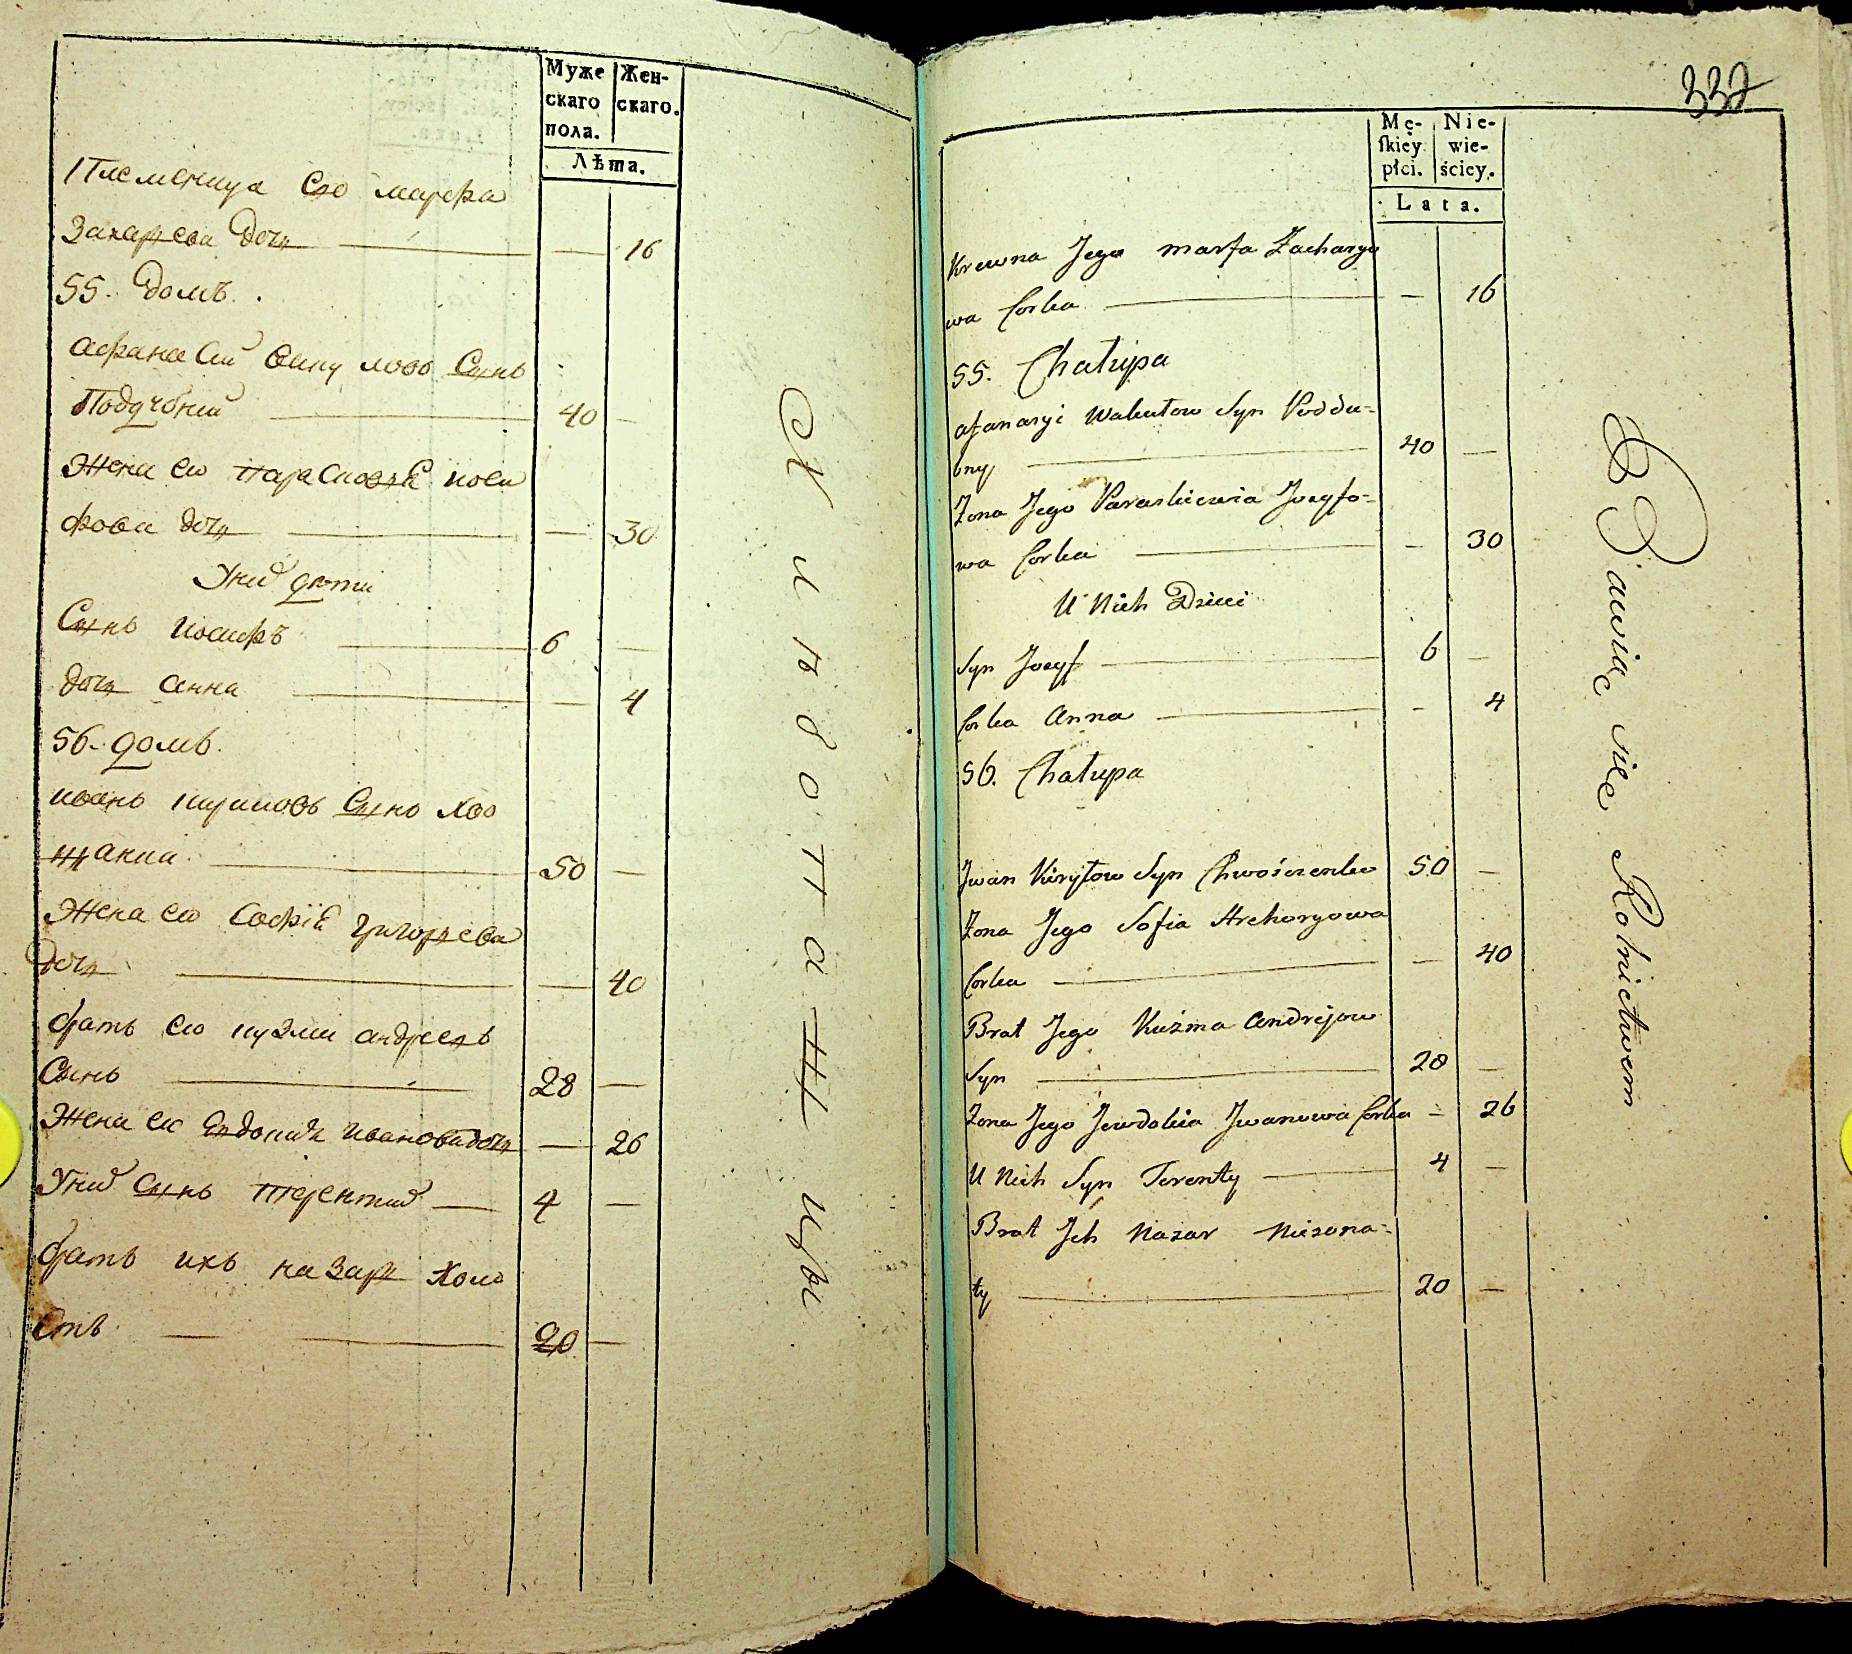 Муже
скаго
пола.
Жен-
скаго.
Лѣта.
Племеница его марфа
Захарьева дочь — — 16
55. домъ.
афанасий викулово Сынъ
Поддубний — 40 —
Жена ево Парасковѣя иоси
фова дочь — — 30
У них дѣти
Сынъ иосифъ — 6 —
дочь анна — — 4
56. домъ.
иванъ кириловъ Сынъ Хво
щанка — 50 —
Жена ево Софія григорьева
дочь — — 40
братъ ево кузма андреевъ
Сынъ — 28 —
Жена ево Евдокия ивановадочь — 26
У них Сынъ терентий — 4 —
братъ ихъ назаръ холо
стъ — 20 —
Хлѣбопашцы
337
Mę-
skiéy
płci.
Nie-
wie-
ściey.
Lata.
Krewna Jego marfa Zacharyo
wa Corka — — 16
55. Chałupa
afanasyi Wakułow Syn Poddu-
bny — 40 —
Zona Jego Paraskiewia Jozyfo-
wa Corka — — 30
U Nich Dzieci
Syn Jozyf — 6 —
Corka Anna — — 4
56. Chałupa
Jwan Kiryłow Syn Chwoszczenko 50 —
Zona Jego Sofia Hrehoryowa
Corka — — 40
Brat Jego Kuźma Andrejow
Syn — 28 —
Zona Jego Jewdokia Jwanowa Corka — 26
U Nich Syn Terenty — 4 —
Brat Jch Nazar Niezona-
ty — 20 —
Bawią się Rolnictwem